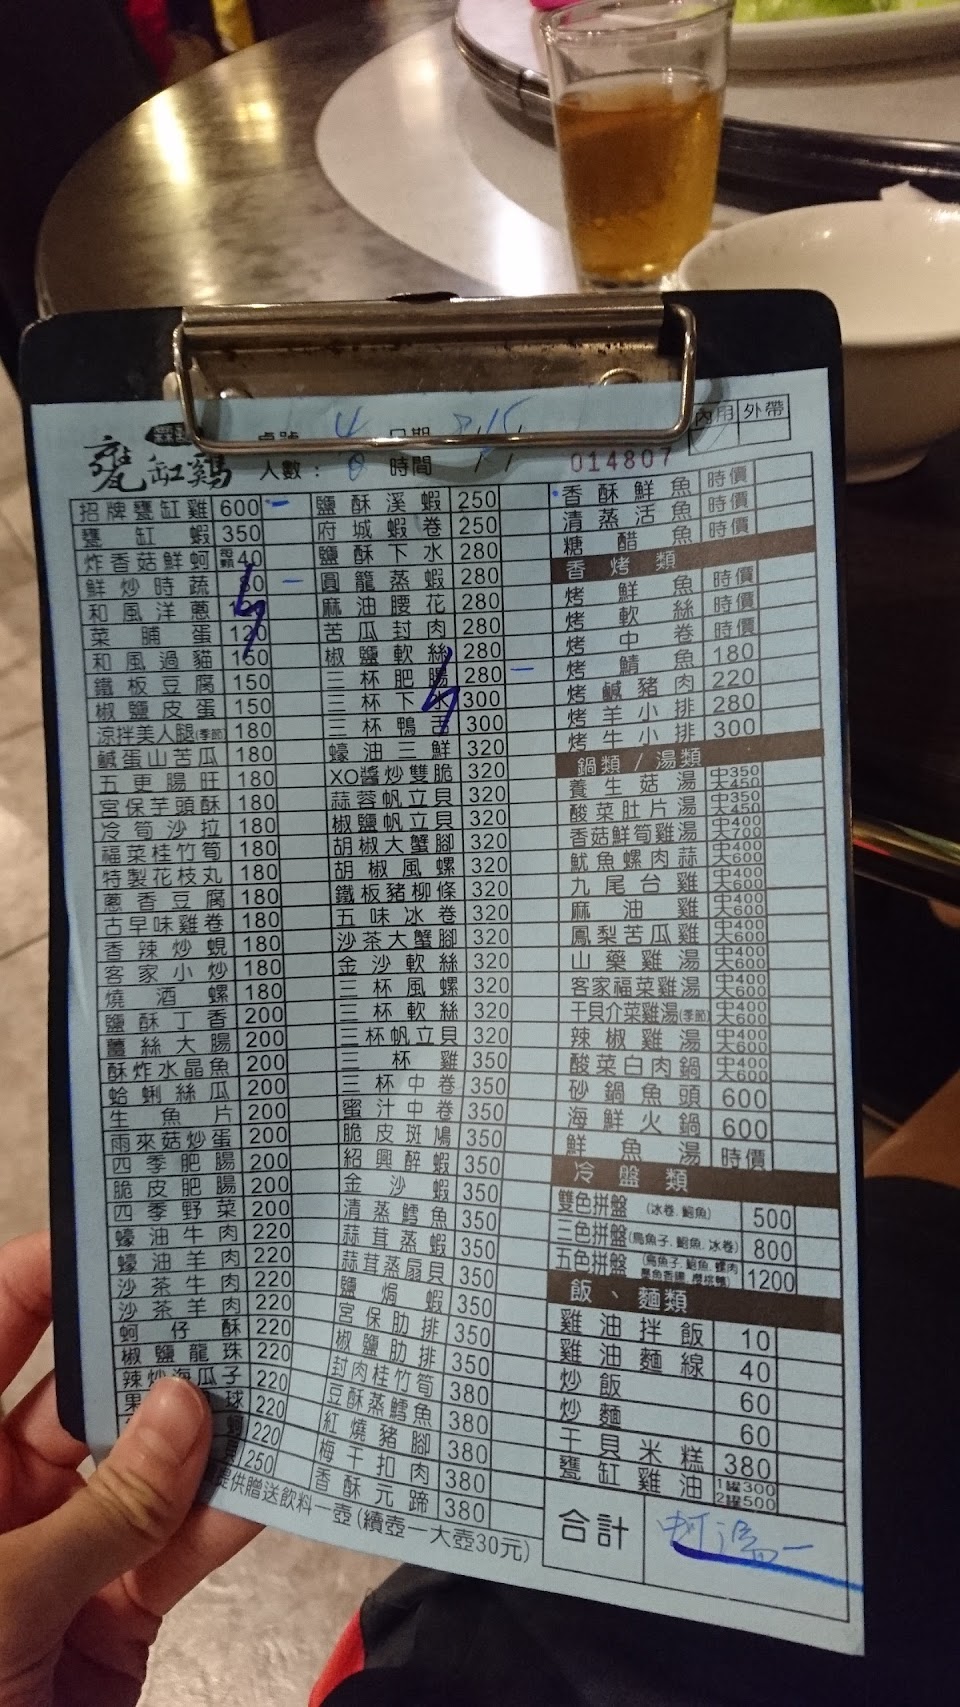 甕缸雞
桌號 4 日期
人數： 時間
014807
內用 外帶
招牌甕缸雞 600 一
甕缸蝦 350
炸香菇鮮蚵 40
鮮炒時蔬 80
和風洋蔥
菜脯蛋 120
和風過貓 150
鐵板豆腐 150
椒鹽皮蛋 150
涼拌美人腿(季節) 180
鹹蛋山苦瓜 180
五更腸旺 180
宮保芋頭酥 180
冷筍沙拉 180
福菜桂竹筍 180
特製花枝丸 180
蔥香豆腐 180
古早味雞卷 180
香辣炒蜆 180
客家小炒 180
燒酒螺 180
鹽酥丁香 200
薑絲大腸 200
酥炸水晶魚 200
蛤蜊絲瓜 200
生魚片 200
雨來菇炒蛋 200
四季肥腸 200
脆皮肥腸 200
四季野菜 200
蠔油牛肉 220
蠔油羊肉 220
沙茶牛肉 220
沙茶羊肉 220
蚵仔酥 220
椒鹽龍珠 220
辣炒海瓜子 220
球 220
220
250
鹽酥溪蝦 250
府城蝦卷 250
鹽酥下水 280
圓籠蒸蝦 280
麻油腰花 280
苦瓜封肉 280
椒鹽軟絲 280
三杯肥腸 280
三杯下水 300
三杯鴨舌 300
蠔油三鮮 320
XO醬炒雙脆 320
蒜蓉帆立貝 320
椒鹽帆立貝 320
胡椒大蟹腳 320
胡椒風螺 320
鐵板豬柳條 320
五味冰卷 320
沙茶大蟹腳 320
金沙軟絲 320
三杯風螺 320
三杯軟絲 320
三杯帆立貝 320
三杯雞 350
三杯中卷 350
蜜汁中卷 350
脆皮斑鳩 350
紹興醉蝦 350
金沙蝦 350
清蒸鱈魚 350
蒜茸蒸蝦 350
蒜茸蒸扇貝 350
鹽焗蝦 350
宮保肋排 350
椒鹽肋排 350
封肉桂竹筍 380
豆酥蒸鱈魚 380
紅燒豬腳 380
梅干扣肉 380
香酥元蹄 380
香酥鮮魚 時價
清蒸活魚 時價
糖醋魚 時價
香烤類
烤鮮魚 時價
烤軟絲 時價
烤中卷 時價
烤鯖魚 180
烤鹹豬肉 220
烤羊小排 280
烤牛小排 300
鍋類/湯類
養生菇湯 中350 大450
酸菜肚片湯 中350 大450
香菇鮮筍雞湯 中400 大700
魷魚螺肉蒜 中400 大600
九尾台雞 中400 大600
麻油雞 中400 大600
鳳梨苦瓜雞 中400 大600
山藥雞湯 中400 大600
客家福菜雞湯 中400 大600
干貝介菜雞湯(季節) 中400 大600
辣椒雞湯 中400 大600
酸菜白肉鍋 中400 大600
砂鍋魚頭 600
海鮮火鍋 600
鮮魚湯 時價
冷盤類
雙色拼盤 (冰卷.鮑魚) 500
三色拼盤 (烏魚子.鮑魚.冰卷) 800
五色拼盤 1200
飯、麵類
雞油拌飯 10
雞油麵線 40
炒飯 60
炒麵 60
干貝米糕 380
甕缸雞油 1罐300 2罐500
合計
提供贈送飲料一壺(續壺一大壺30元)